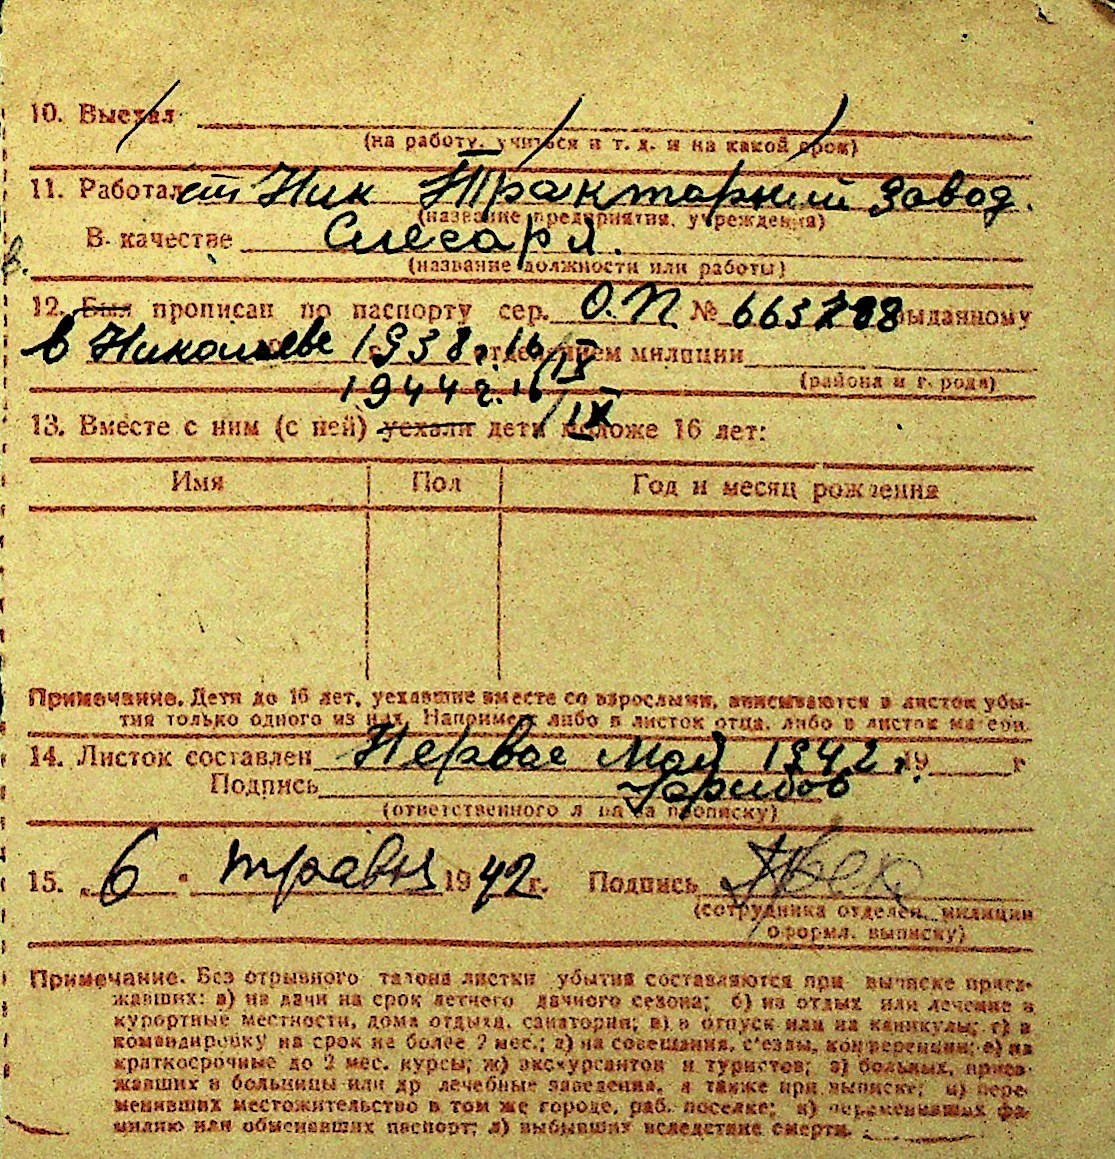 10. Выехал
(на работу, учиться и т. д. и на какой срок)
11. Работал ст Ник Тракторний завод.
(название предприятия, учреждения)
В качестве Слесаря.
(название должности или работы)
12. Был прописан по паспорту сер. О.П № 663788 выданному
в Николаеве 1938 г. 16/IX отделением милиции
1944 г. 16/IX (района и г. рода)
13. Вместе с ним (с ней) уехали дети моложе 16 лет:
Имя Пол Год и месяц рождения
Примечание. Дети до 16 лет, уехавшие вместе со взрослыми, вписываются в листок убы-
тия только одного из них. Например либо в листок отца, либо в листок матери.
14. Листок составлен Первое Май 1942 г. 19 г
Подпись
(ответственного л ца за прописку)
15. „6" травня 1942 г. Подпись
(сотрудника отделен. милиции
оформл. выписку)
Примечание. Без отрывного талона листки убытия составляются при выписке приез-
жавших: а) на дачи на срок летнего дачного сезона; б) на отдых или лечение в
курортные местности, дома отдыха, санатории; в) в отпуск или на каникулы; г) в
командировку на срок не более 2 мес.; д) на совещания, с'езды, конференции; е) на
краткосрочные до 2 мес. курсы; ж) экскурсантов и туристов; з) больных, приез-
жавших в больницы или др лечебные заведения, а также при выписке; и) пере-
менивших местожительство в том же городе, раб. поселке; к) переменивших фа-
милию или обменявших паспорт; л) выбывших вследствие смерти.